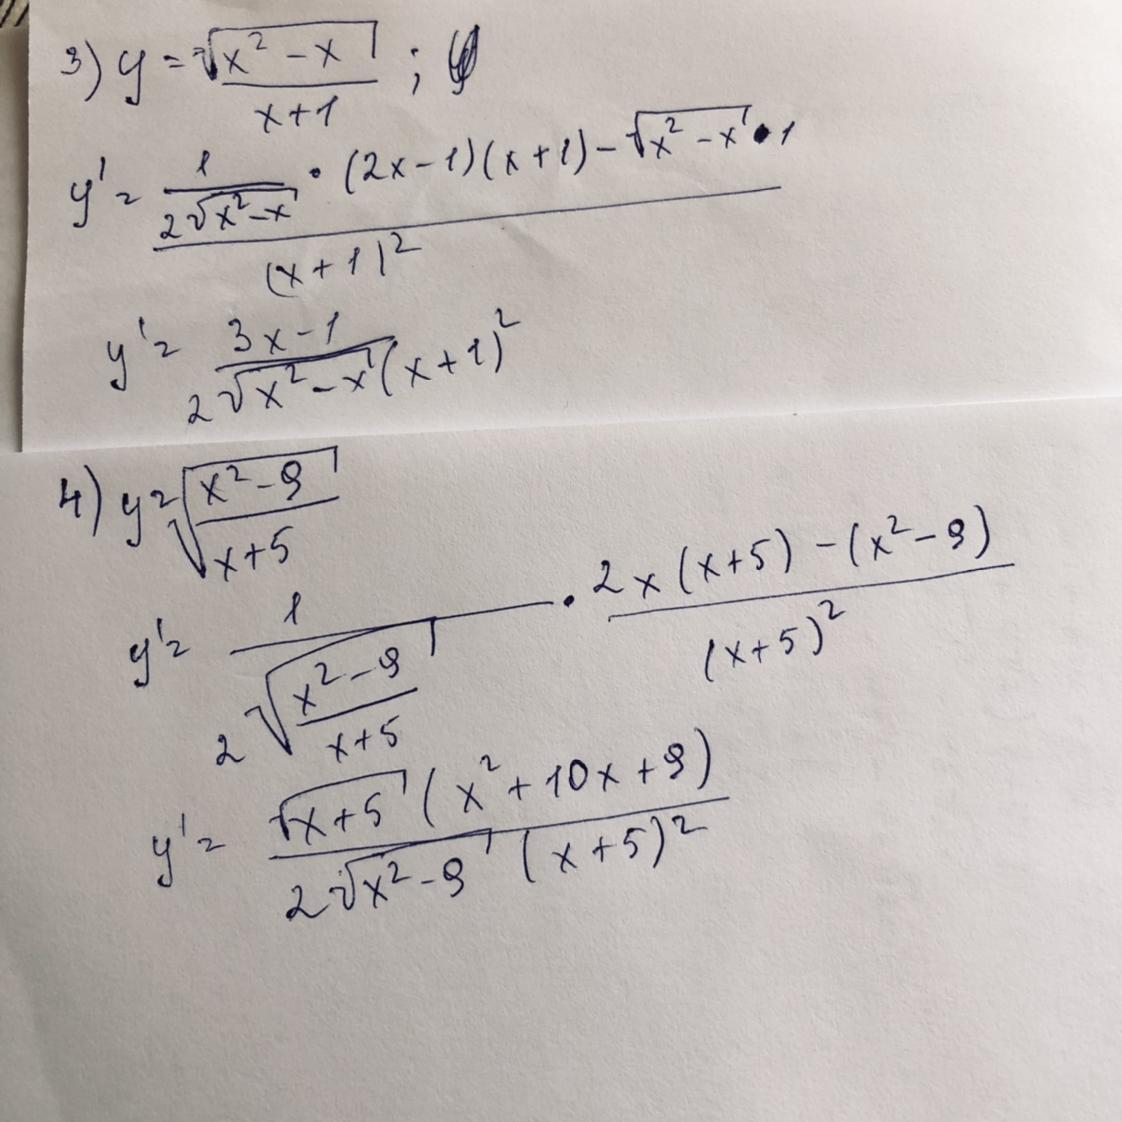 3) y = √(x² - x) / (x+1) ;
y' = (1/(2√(x² - x)) • (2x-1)(x+1) - √(x² - x) • 1) / (x+1)²
y' = (3x-1) / (2√(x² - x) (x+1)²)
4) y = √((x² - 9)/(x+5))
y' = 1/(2√((x² - 9)/(x+5))) • (2x(x+5) - (x² - 9))/(x+5)²
y' = (√(x+5) (x² + 10x + 9)) / (2√(x² - 9) (x+5)²)